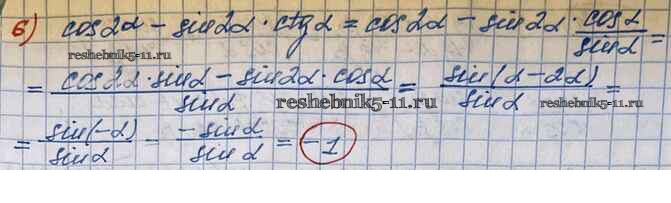 б) cos2α - sin2α · ctgα = cos2α - sin2α · cosα/sinα =
reshebnik5-11.ru
= (cos2α · sinα - sin2α · cosα)/sinα = sin(α-2α)/sinα =
reshebnik5-11.ru
reshebnik5-11.ru
= sin(-α)/sinα = -sinα/sinα = -1